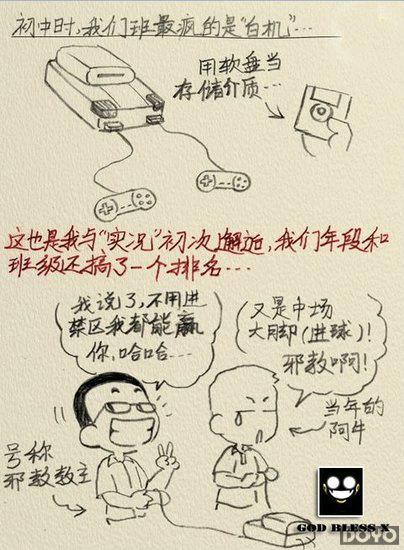 初中时,我们班最疯的是"白机"…
用软盘当
存储介质…
这也是我与"实况"初次邂逅,我们年段和
班级还搞了一个排名…
我说了,不用进
禁区我都能赢
你,哈哈…
又是中场
大脚(进球)!
邪教啊!
当年的
阿牛
号称
邪教教主
GOD BLESS X
DOYO